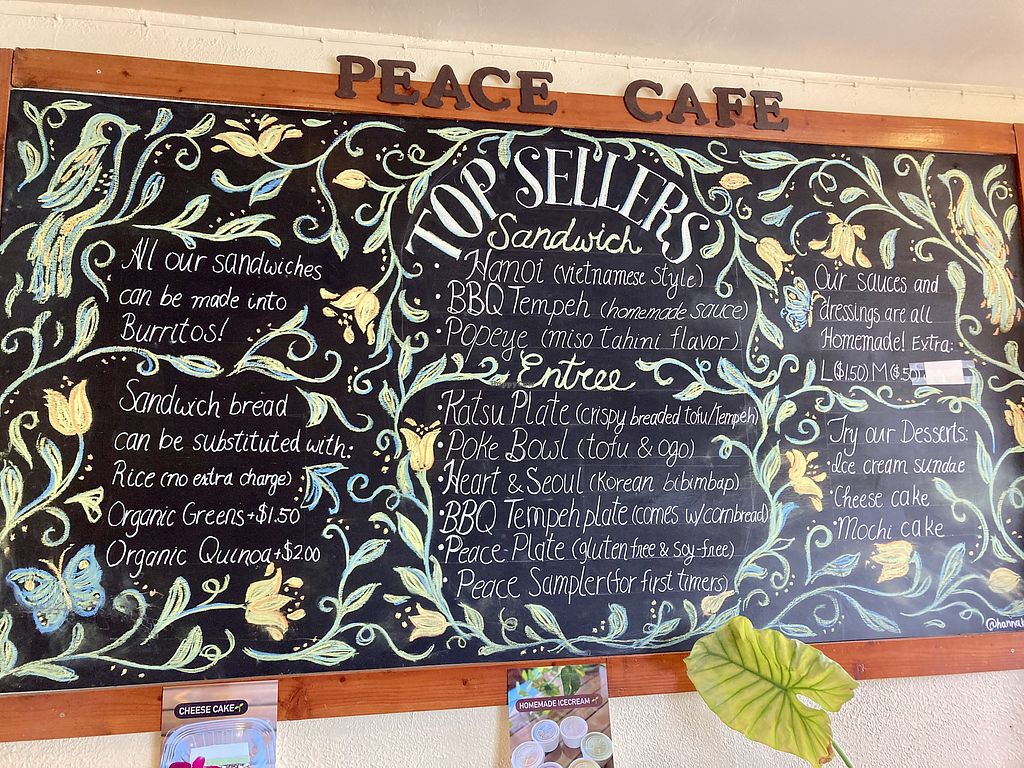 PEACE CAFE
TOP SELLERS
All our sandwiches
can be made into
Burritos!
Sandwich bread
can be substituted with:
Rice (no extra charge)
Organic Greens +$1.50
Organic Quinoa +$2.00
Sandwich
• Hanoi (vietnamese style)
• BBQ Tempeh (homemade sauce)
• Popeye (miso tahini flavor)
Entree
• Katsu Plate (crispy breaded tofu/Tempeh)
• Poke Bowl (tofu & ogo)
• Heart & Seoul (Korean bibimbap)
• BBQ Tempeh plate (comes w/cornbread)
• Peace Plate (gluten free & soy-free)
• Peace Sampler (for first timers)
Our sauces and
dressings are all
Homemade! Extra:
L ($1.50) M ($.50)
Try our Desserts:
• Ice cream sundae
• Cheese cake
• Mochi cake
CHEESE CAKE
HOMEMADE ICECREAM